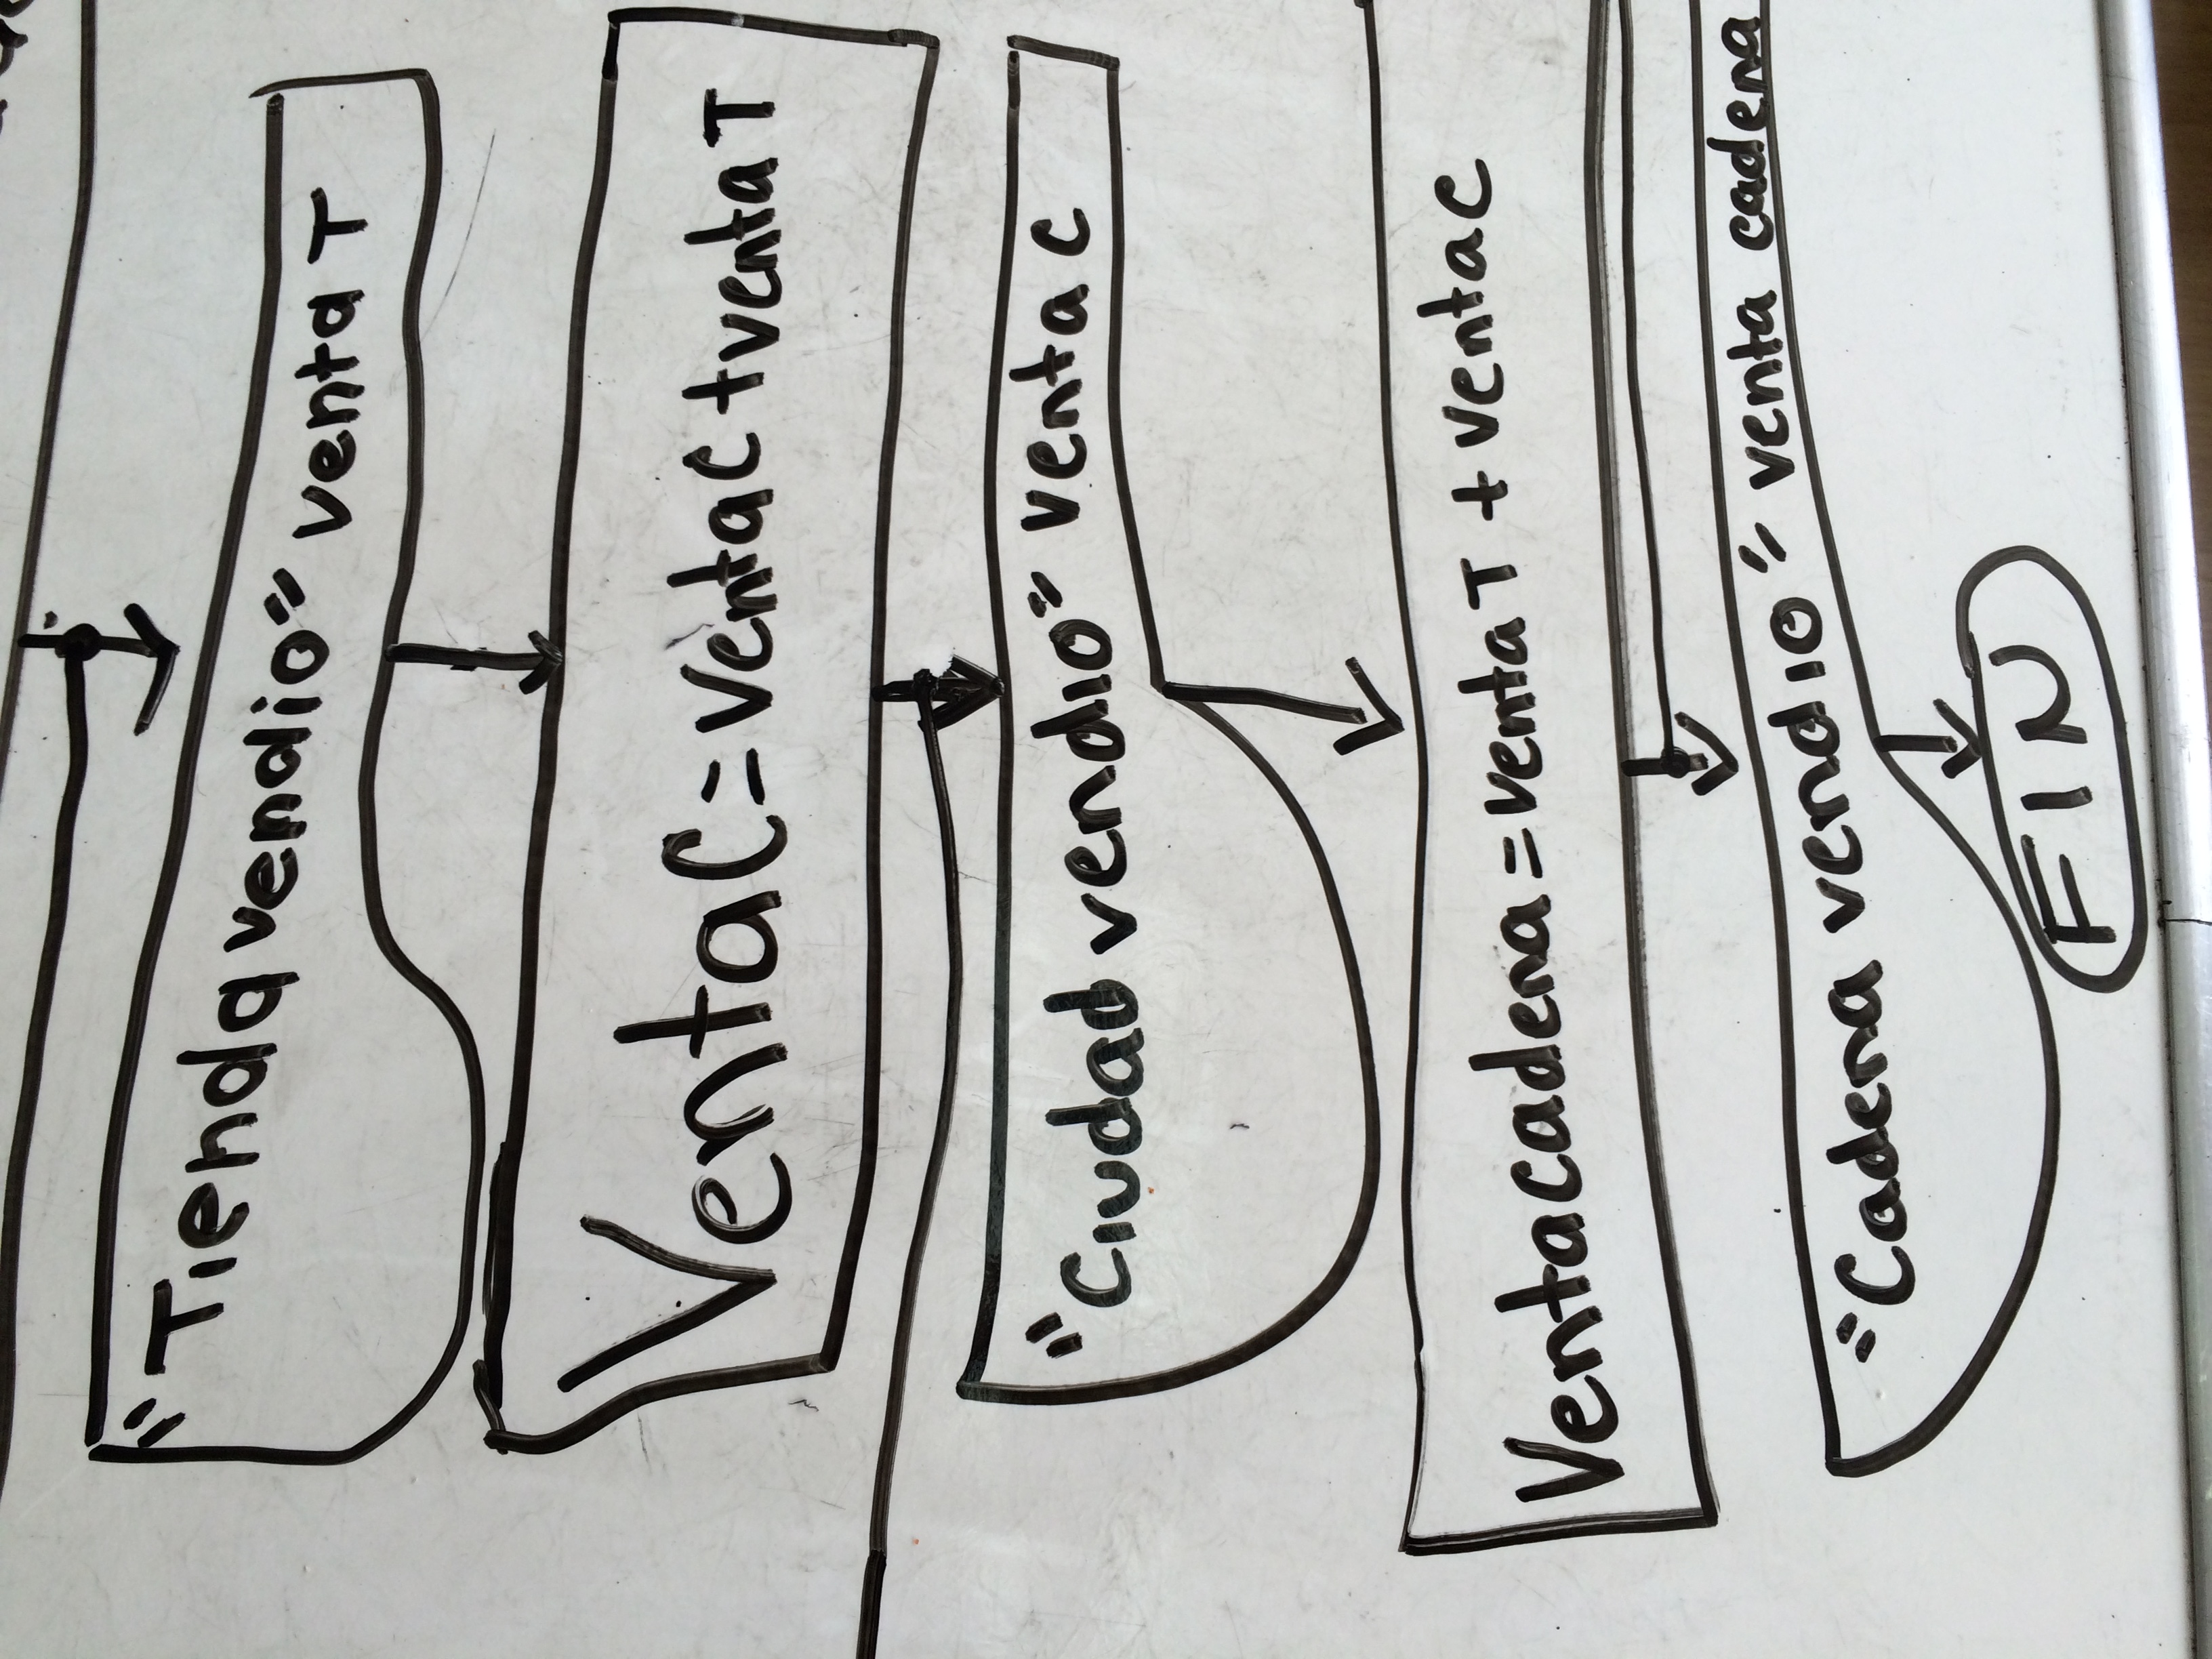 "Tienda vendio" venta T
Venta C = venta C + venta T
"Ciudad vendio" venta C
Venta cadena = venta T + venta C
"Cadena vendio" venta cadena
FIN